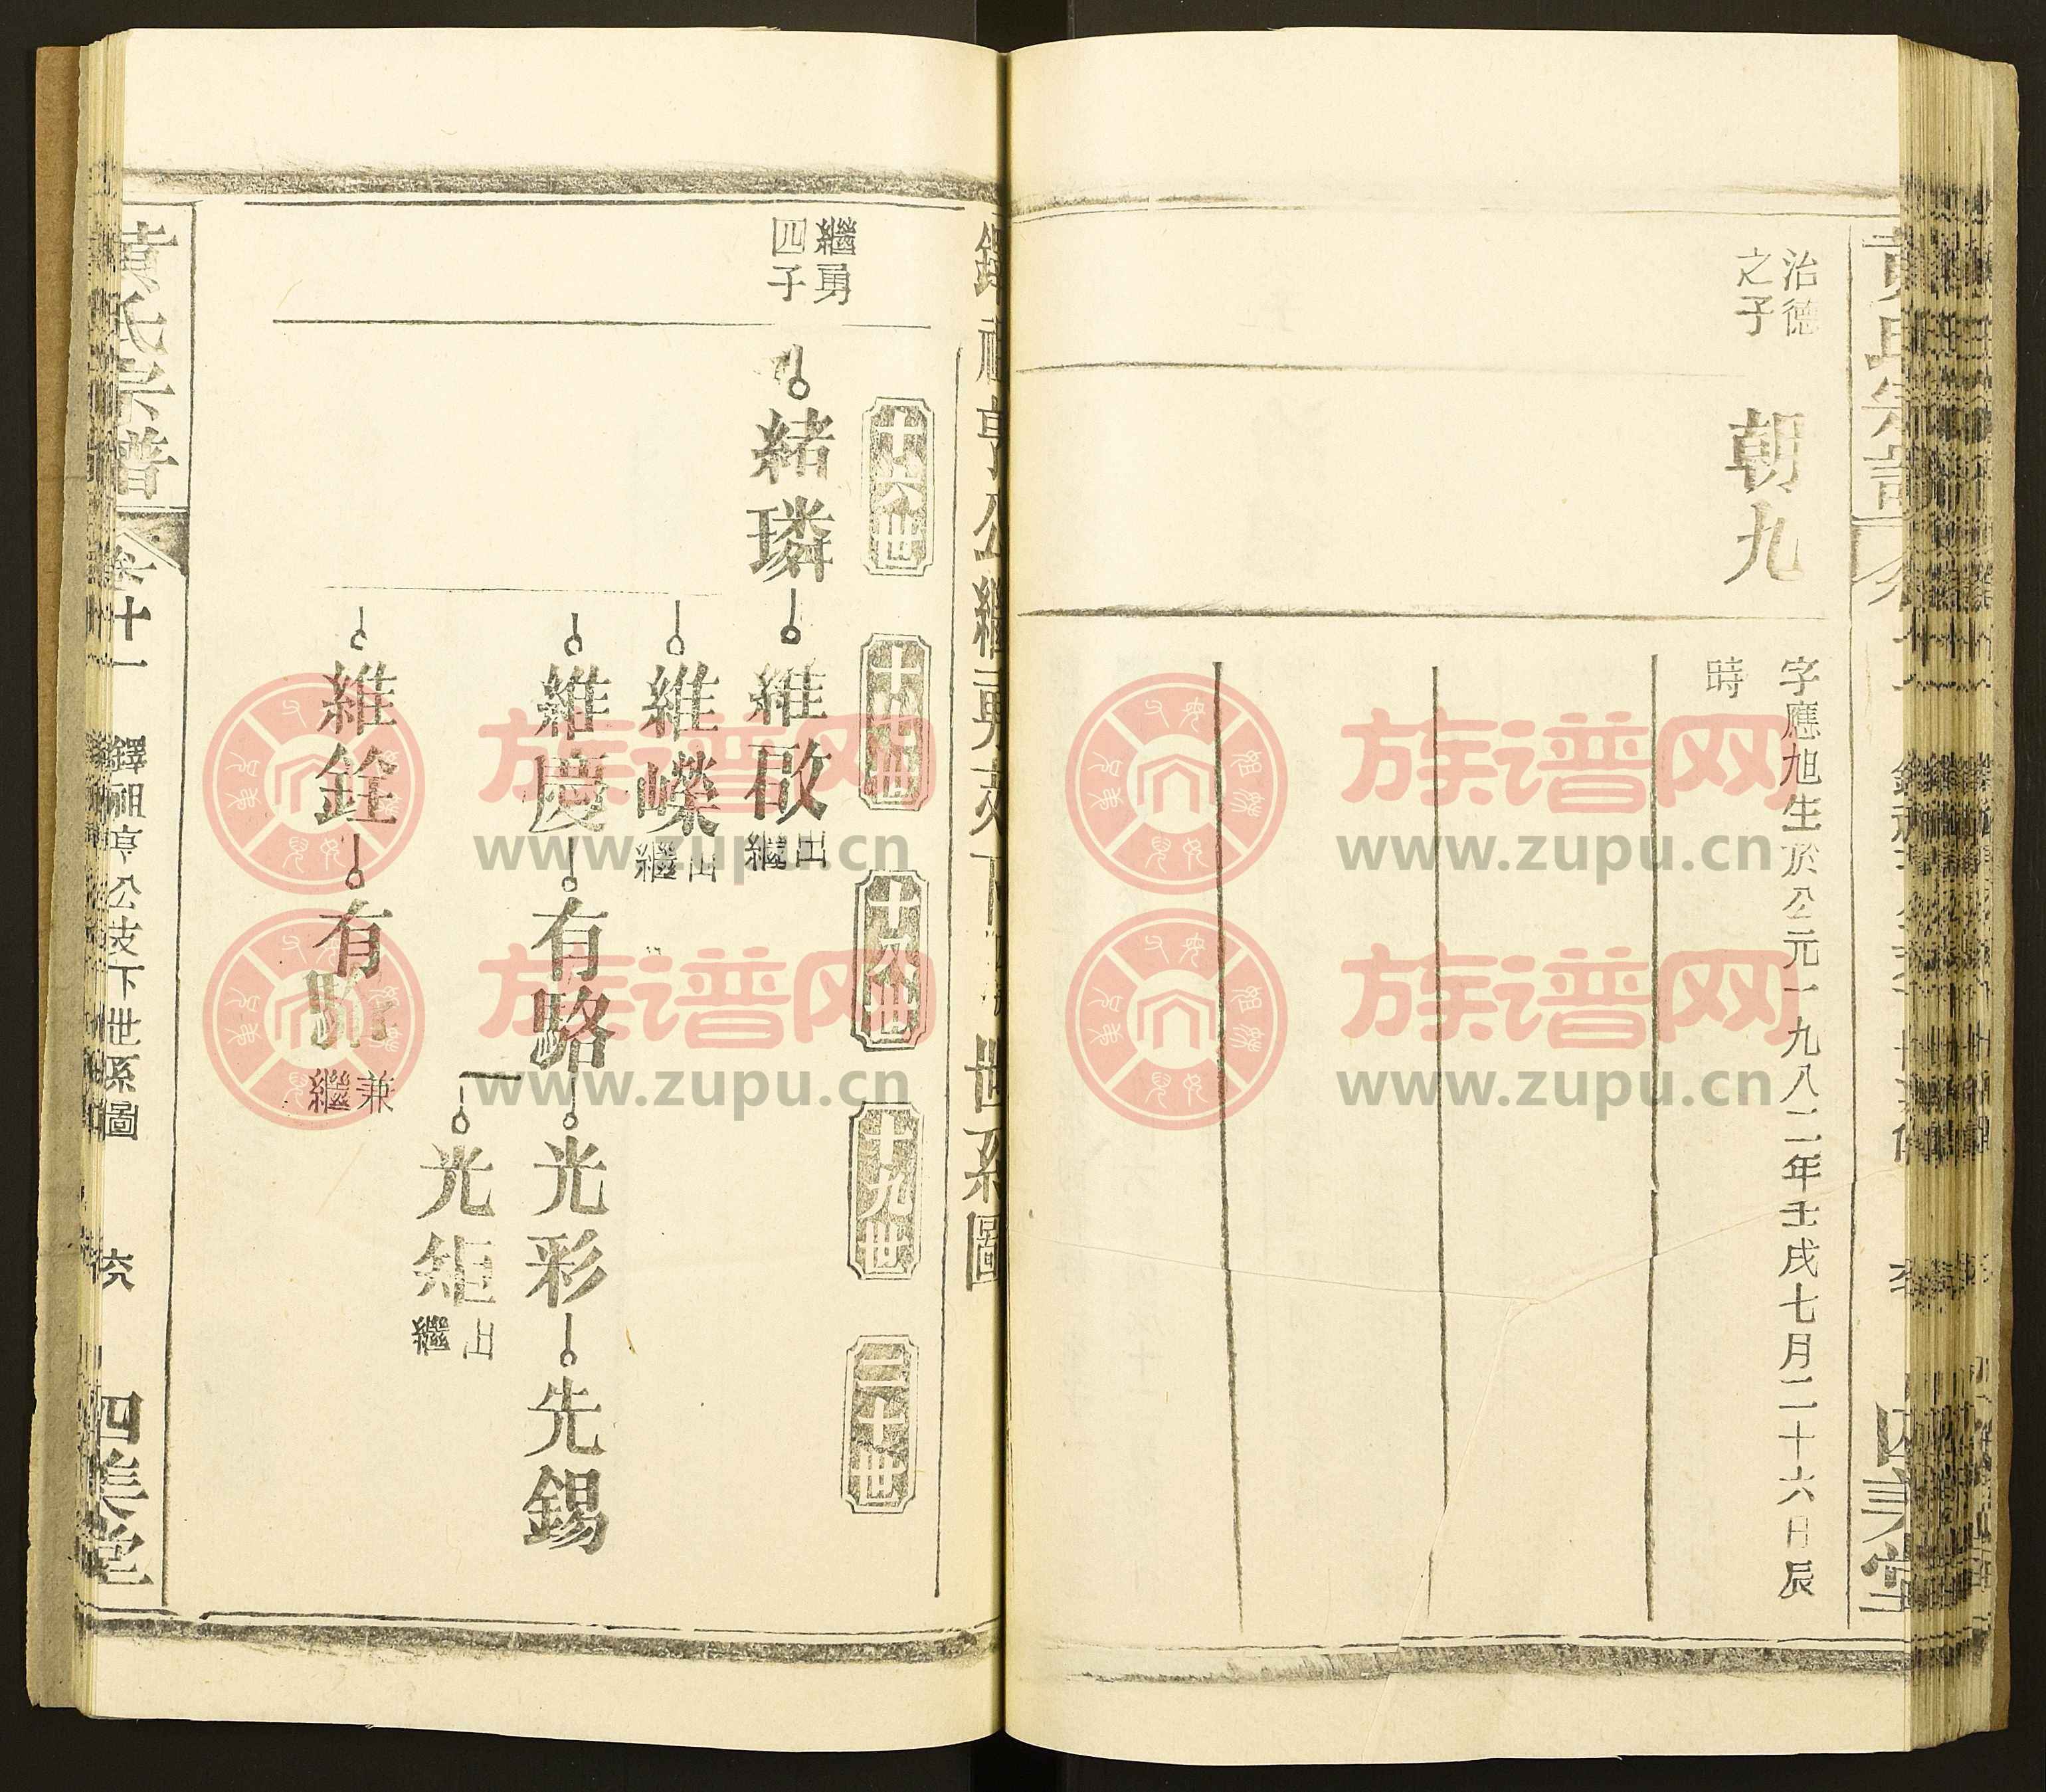 治德
之子
朝九
字應旭生於公元一九八二年壬戌七月二十六日辰
時
四美堂
世系圖
十六世
十七世
十八世
十九世
二十世
繼勇
四子
緒璘
維啟
出繼
維嶸
出繼
維慶
有略
光彩
先錫
光矩
出繼
維銓
有
兼繼
袁氏宗譜
卷十一
鐸祖亨公支下世系圖
六
四美堂
族谱网
www.zupu.cn
族谱网
www.zupu.cn
族谱网
www.zupu.cn
族谱网
www.zupu.cn